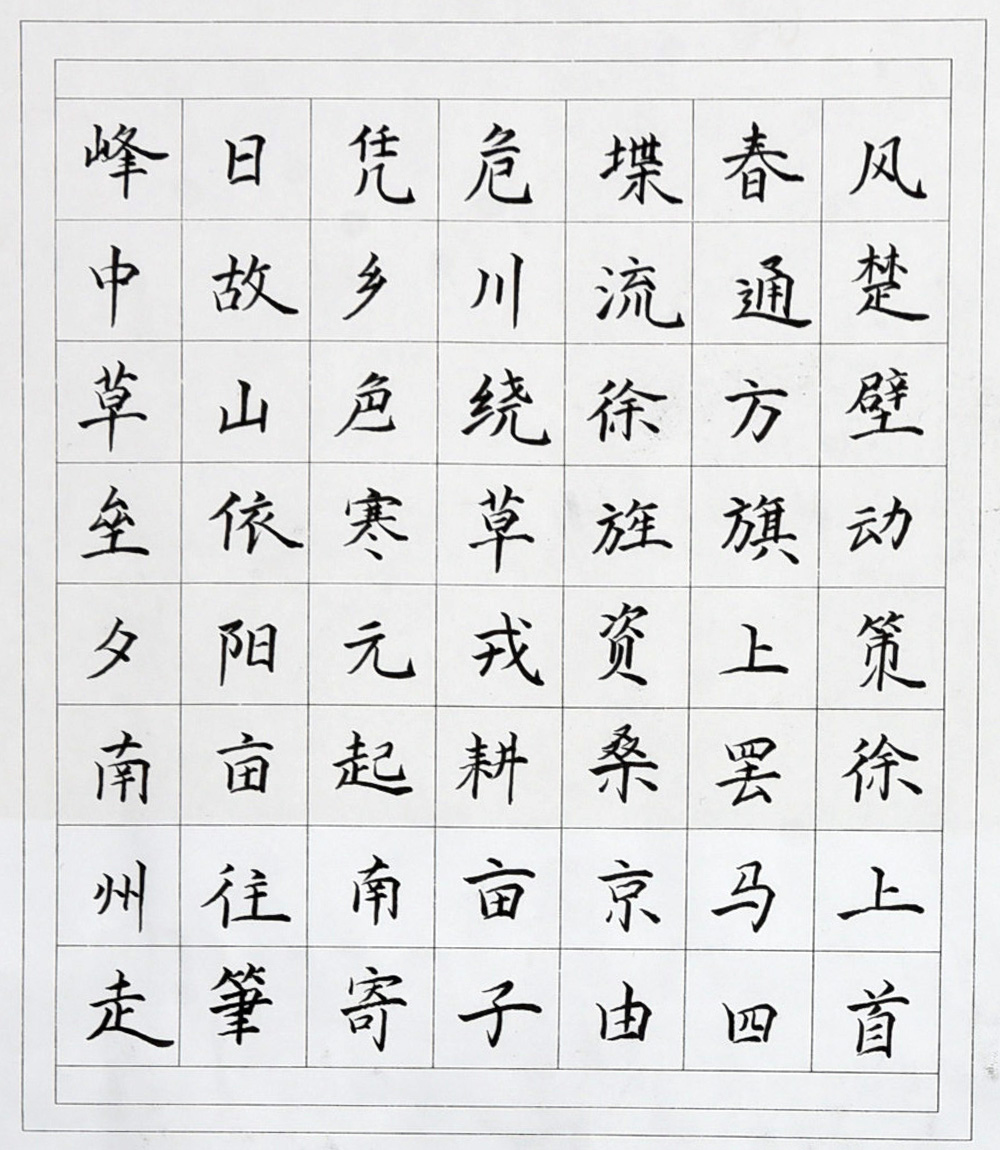 峰日凭危堞春风
中故乡川流通楚
草山色绕徐方壁
垒依寒草旌旗动
夕阳元戎资上策
南亩起耕桑罢徐
州往南亩京马上
走筆寄子由四首